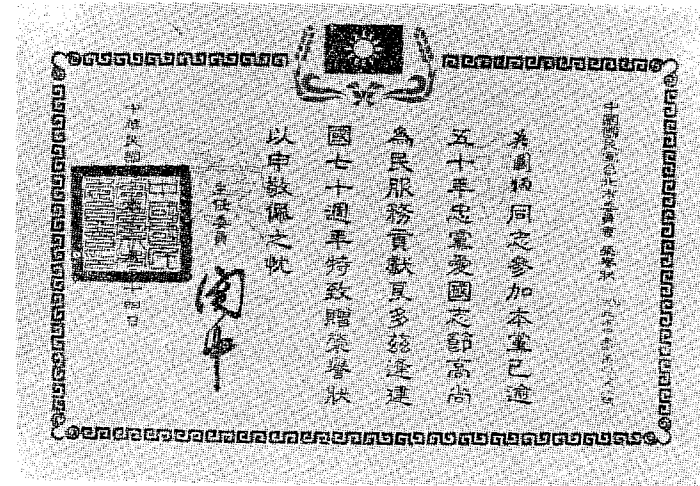 中國國民黨台北市委員會 榮譽狀
同志參加本黨已逾
五十年忠黨愛國志節高尚
為民服務貢獻良多茲逢建
國七十週年特致贈榮譽狀
以申敬佩之忱
主任委員
關中
中華民國 十四日